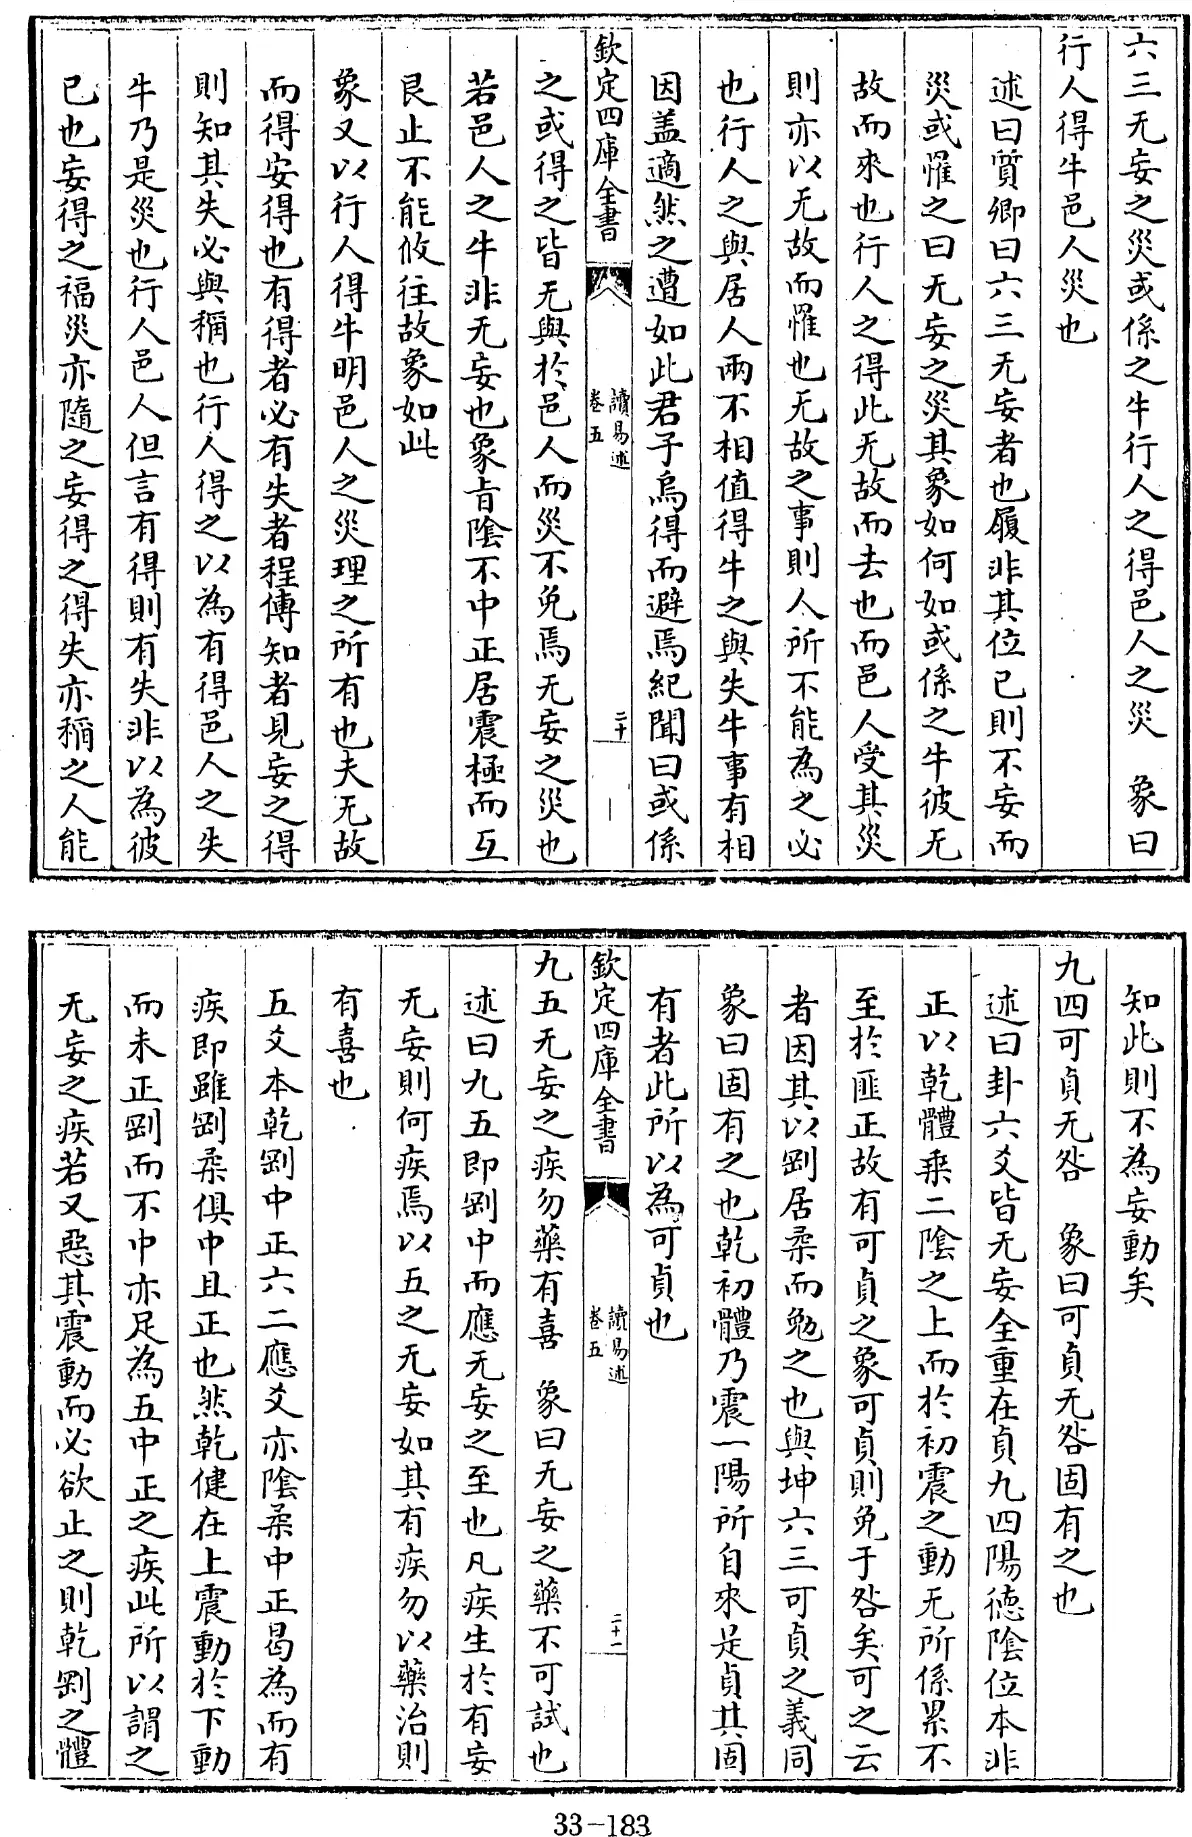 六三无妄之災或係之牛行人之得邑人之災　象曰
行人得牛邑人災也
述曰質卿曰六三无妄者也履非其位已則不妄而
災或罹之曰无妄之災其象如何如或係之牛彼无
故而來也行人之得此无故而去也而邑人受其災
則亦以无故而罹也无故之事則人所不能為之必
也行人之與居人兩不相值得牛之與失牛事有相
因盖適然之遭如此君子烏得而避焉紀聞曰或係
欽定四庫全書
讀易述
卷五
二十
之或得之皆无與於邑人而災不免焉无妄之災也
若邑人之牛非无妄也象旨陰不中正居震極而互
艮止不能攸往故象如此
象又以行人得牛明邑人之災理之所有也夫无故
而得妄得也有得者必有失者程傳知者見妄之得
則知其失必與稱也行人得之以為有得邑人之失
牛乃是災也行人邑人但言有得則有失非以為彼
已也妄得之福災亦隨之妄得之得失亦稱之人能
知此則不為妄動矣
九四可貞无咎　象曰可貞无咎固有之也
述曰卦六爻皆无妄全重在貞九四陽德陰位本非
正以乾體乘二陰之上而於初震之動无所係累不
至於匪正故有可貞之象可貞則免于咎矣可之云
者因其以剛居柔而勉之也與坤六三可貞之義同
象曰固有之也乾初體乃震一陽所自來是貞其固
有者此所以為可貞也
欽定四庫全書
讀易述
卷五
二十一
九五无妄之疾勿藥有喜　象曰无妄之藥不可試也
述曰九五即剛中而應无妄之至也凡疾生於有妄
无妄則何疾焉以五之无妄如其有疾勿以藥治則
有喜也
五爻本乾剛中正六二應爻亦陰柔中正曷為而有
疾即雖剛柔俱中且正也然乾健在上震動於下動
而未正剛而不中亦足為五中正之疾此所以謂之
无妄之疾若又惡其震動而必欲止之則乾剛之體
33-183